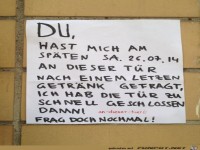 DU,
HAST MICH AM
SPÄTEN SA. 26.07.14
AN DIESER TÜR
NACH EINEM LETZEN
GETRÄNK GEFRAGT,
ICH HAB DIE TÜR ZU
SCHNELL GESCHLOSSEN
DAMN!
FRAG DOCH NOCHMAL!